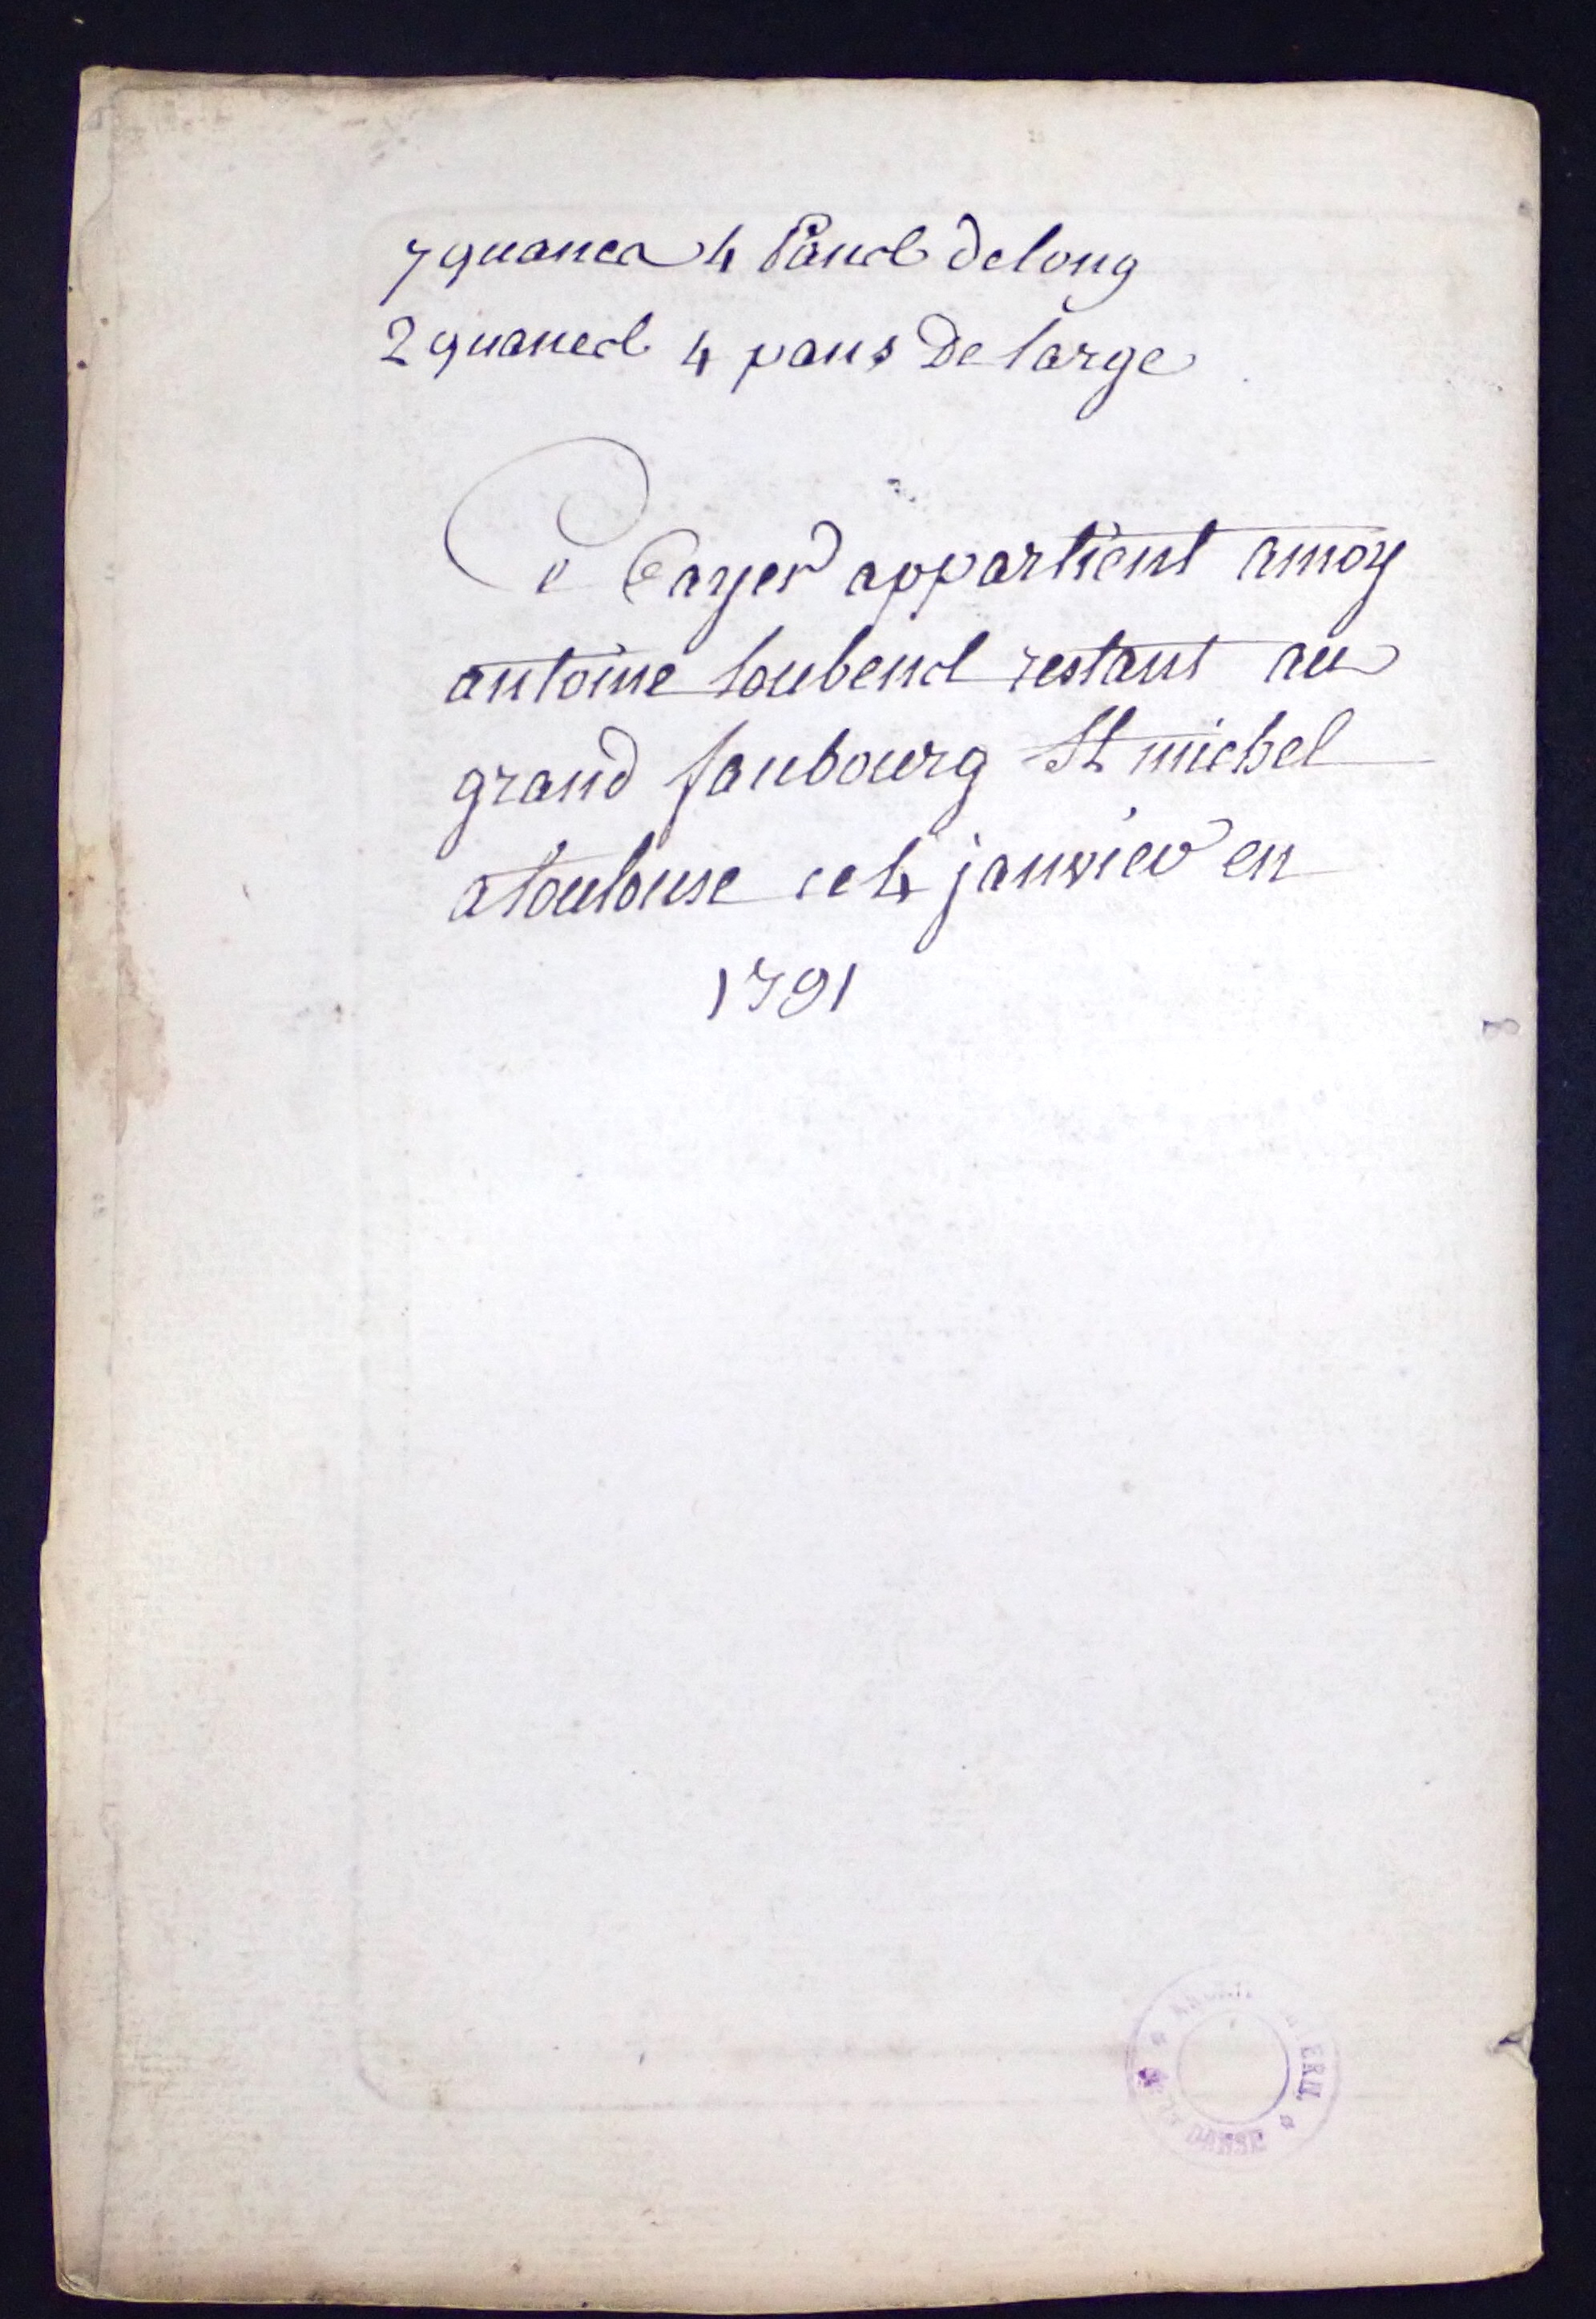 7 quanes 4 Pans de long
2 quanes 4 pans De large
Ce Cayer appartient amoy
antoine loubens restant au
grand faubourg St michel
atoulouse ce 4 janvier en
1791
DANSE